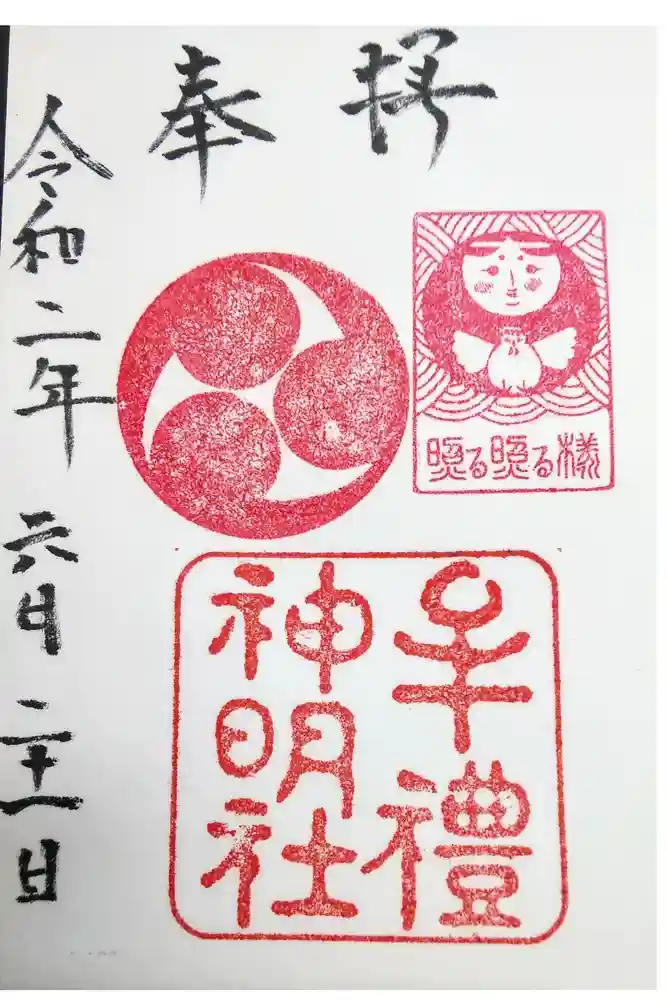 奉拝
照る照る様
牟禮
神明社
令和二年 六月 二十一日